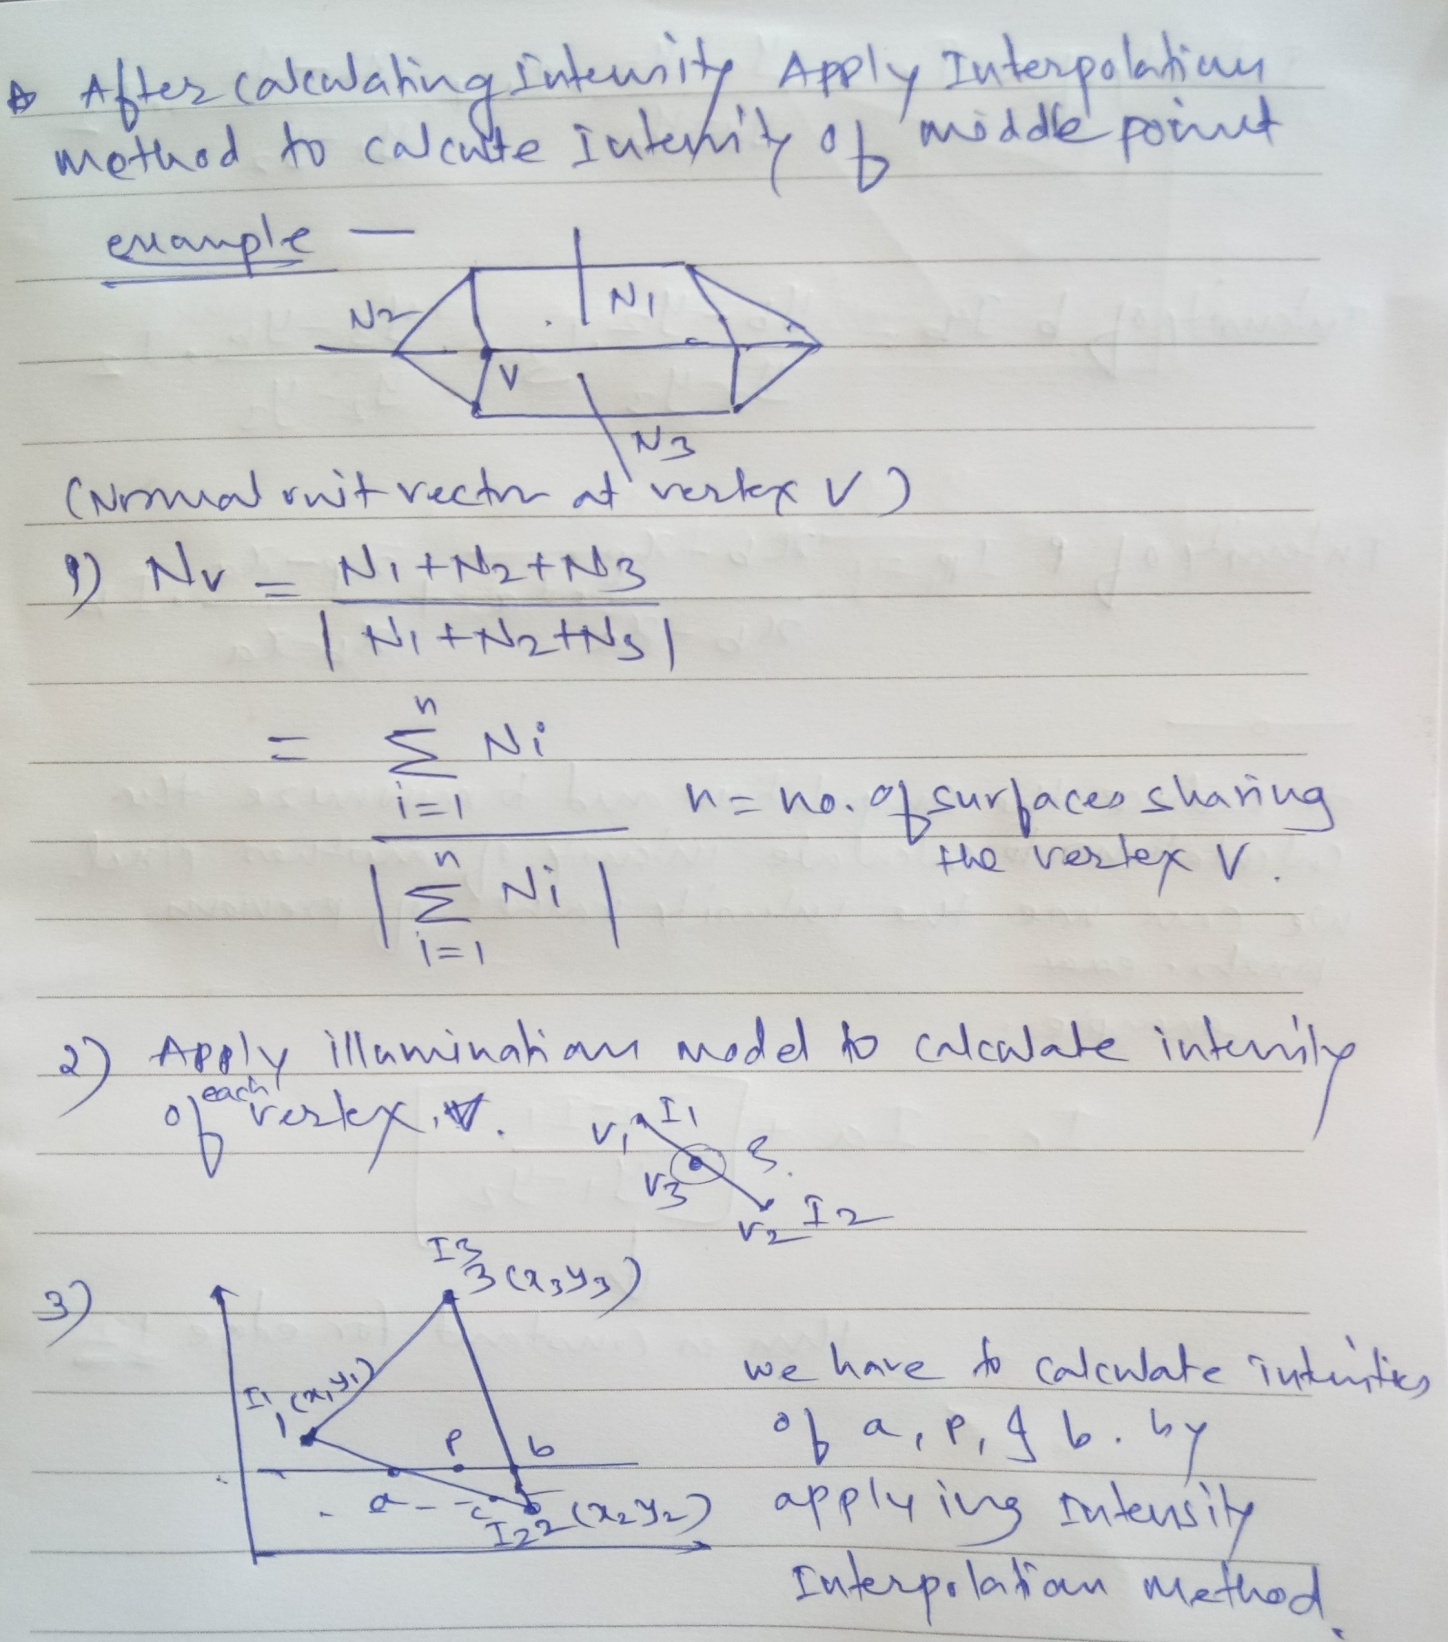 After calculating Intensity Apply Interpolation
method to calcute Intensity of middle point
example —
N2
N1
V
N3
(Normal unit vector at vertex V)
1) Nv = N1+N2+N3
|N1+N2+N3|
= n
Σ Ni
i=1
n = no. of surfaces sharing
the vertex V.
n
|Σ Ni|
i=1
2) Apply illumination model to calculate intensity
of each vertex.
V1 I1
V3
V2 I2
3)
I3
3(x3y3)
I1
1 (x1y1)
P b
a
I2 2 (x2y2)
we have to calculate intensities
of a, P, & b. by
applying Intensity
Interpolation Method.